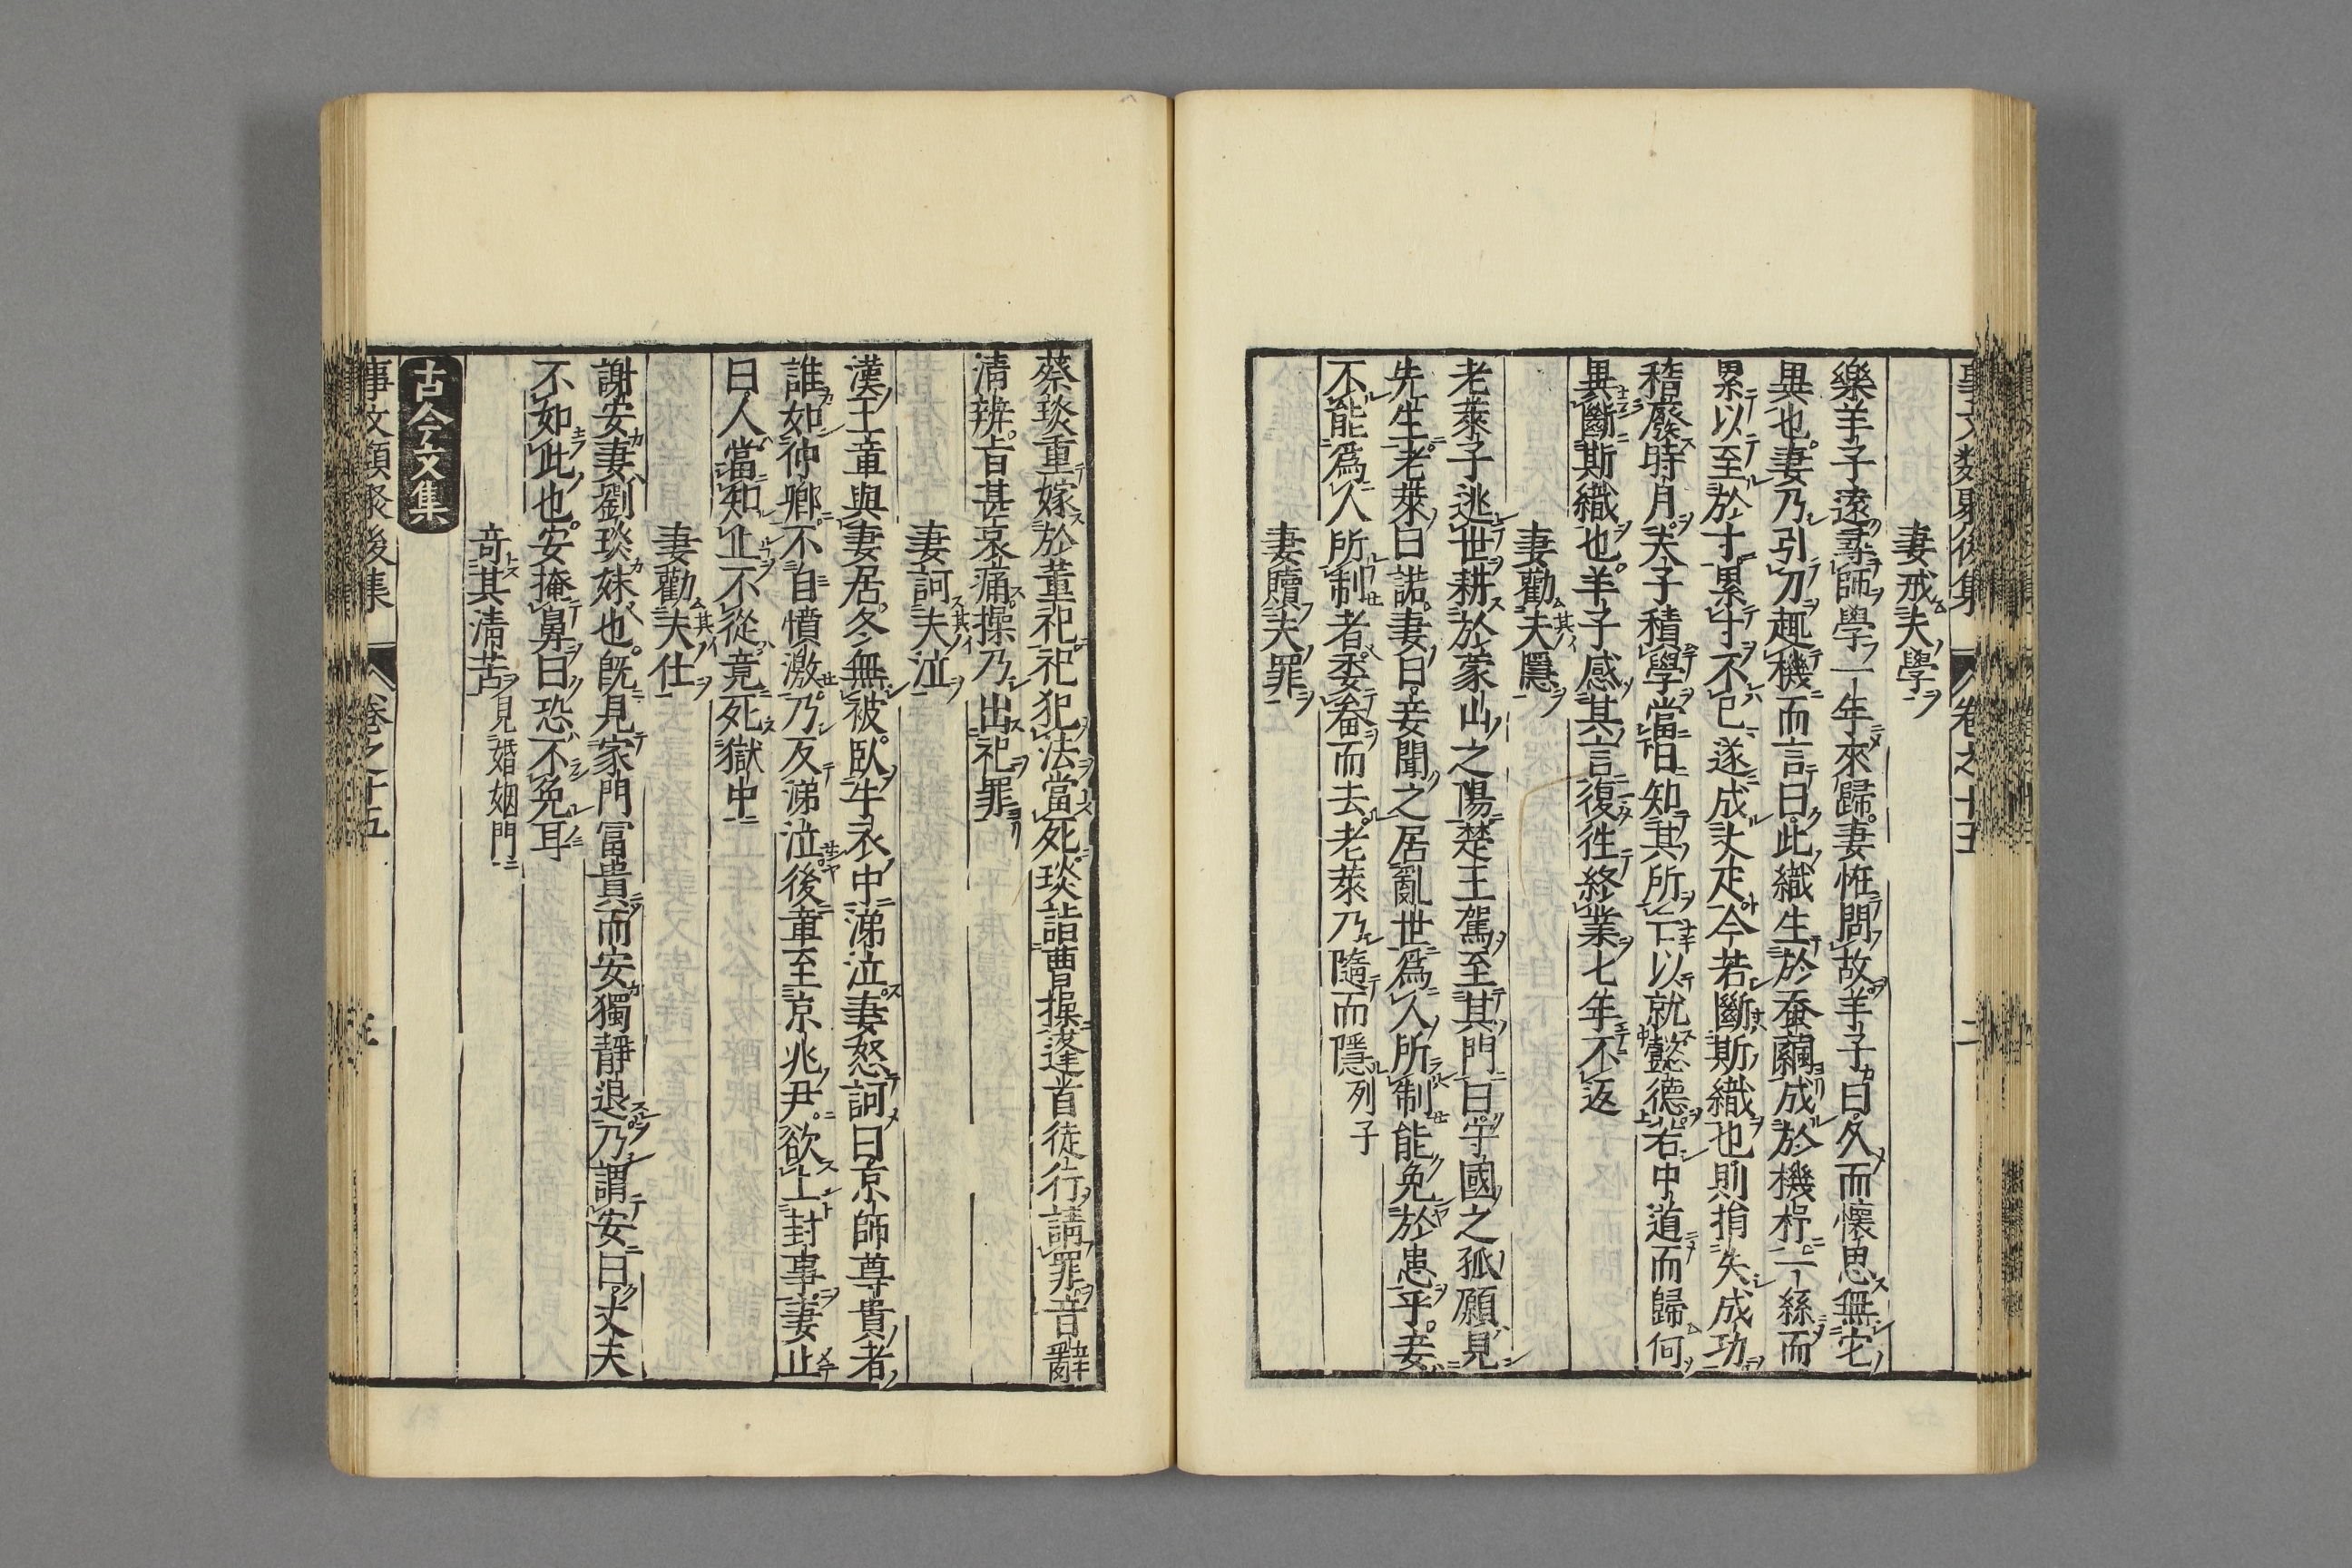 事文類聚後集 卷之十五 二
妻戒夫學
樂羊子遠尋師學一年來歸妻恠問故羊子曰久而懷思無它
異也妻乃引刀趣機而言曰此織生於蚕繭成於機杼一絲而
累以至於寸累寸不已遂成丈疋今若斷斯織也則捐失成功
稽廢時月夫子積學當日知其所亡以就懿德若中道而歸何
異斷斯織也羊子感其言復徃終業七年不返
妻勸夫隱
老萊子逃世耕於蒙山之陽楚王駕至其門曰守國之孤願見
先生老萊曰諾妻曰妾聞之居亂世爲人所制能免於患乎妾
不能爲人所制者委畚而去老萊乃隨而隱列子
妻贖夫罪
蔡琰重嫁於董祀祀犯法當死琰詣曹操蓬首徒行請罪音辭
清辨旨甚哀痛操乃出祀罪
妻訶夫泣
漢王章與妻居冬無被臥牛衣中涕泣妻怒訶曰京師尊貴者
誰如仲卿不自憤激乃反涕泣後章至京兆尹欲上封事妻止
曰人當知止不從竟死獄中
妻勸夫仕
謝安妻劉琰妹也旣見家門富貴而安獨靜退乃謂安曰丈夫
不如此也安掩鼻曰恐不免耳
奇其清苦見婚姻門
古今文集
事文類聚後集 卷之十五